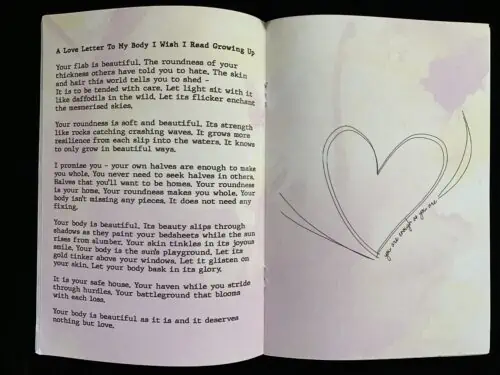 A Love Letter To My Body I Wish I Read Growing Up
Your flab is beautiful. The roundness of your
thickness others have told you to hate. The skin
and hair this world tells you to shed –
It is to be tended with care. Let light sit with it
like daffodils in the wild. Let its flicker enchant
the mesmerised skies.
Your roundness is soft and beautiful. Its strength
like rocks catching crashing waves. It grows more
resilience from each slip into the waters. It knows
to only grow in beautiful ways.
I promise you - your own halves are enough to make
you whole. You never need to seek halves in others.
Halves that you'll want to be homes. Your roundness
is your home. Your roundness makes you whole. Your
body isn't missing any pieces. It does not need any
fixing.
Your body is beautiful. Its beauty slips through
shadows as they paint your bedsheets while the sun
rises from slumber. Your skin tinkles in its joyous
smile. Your body is the sun's playground. Let its
gold tinker above your windows. Let it glisten on
your skin. Let your body bask in its glory.
It is your safe house. Your haven while you stride
through hurdles. Your battleground that blooms
with each loss.
Your body is beautiful as it is and it deserves
nothing but love.
you are enough as you are